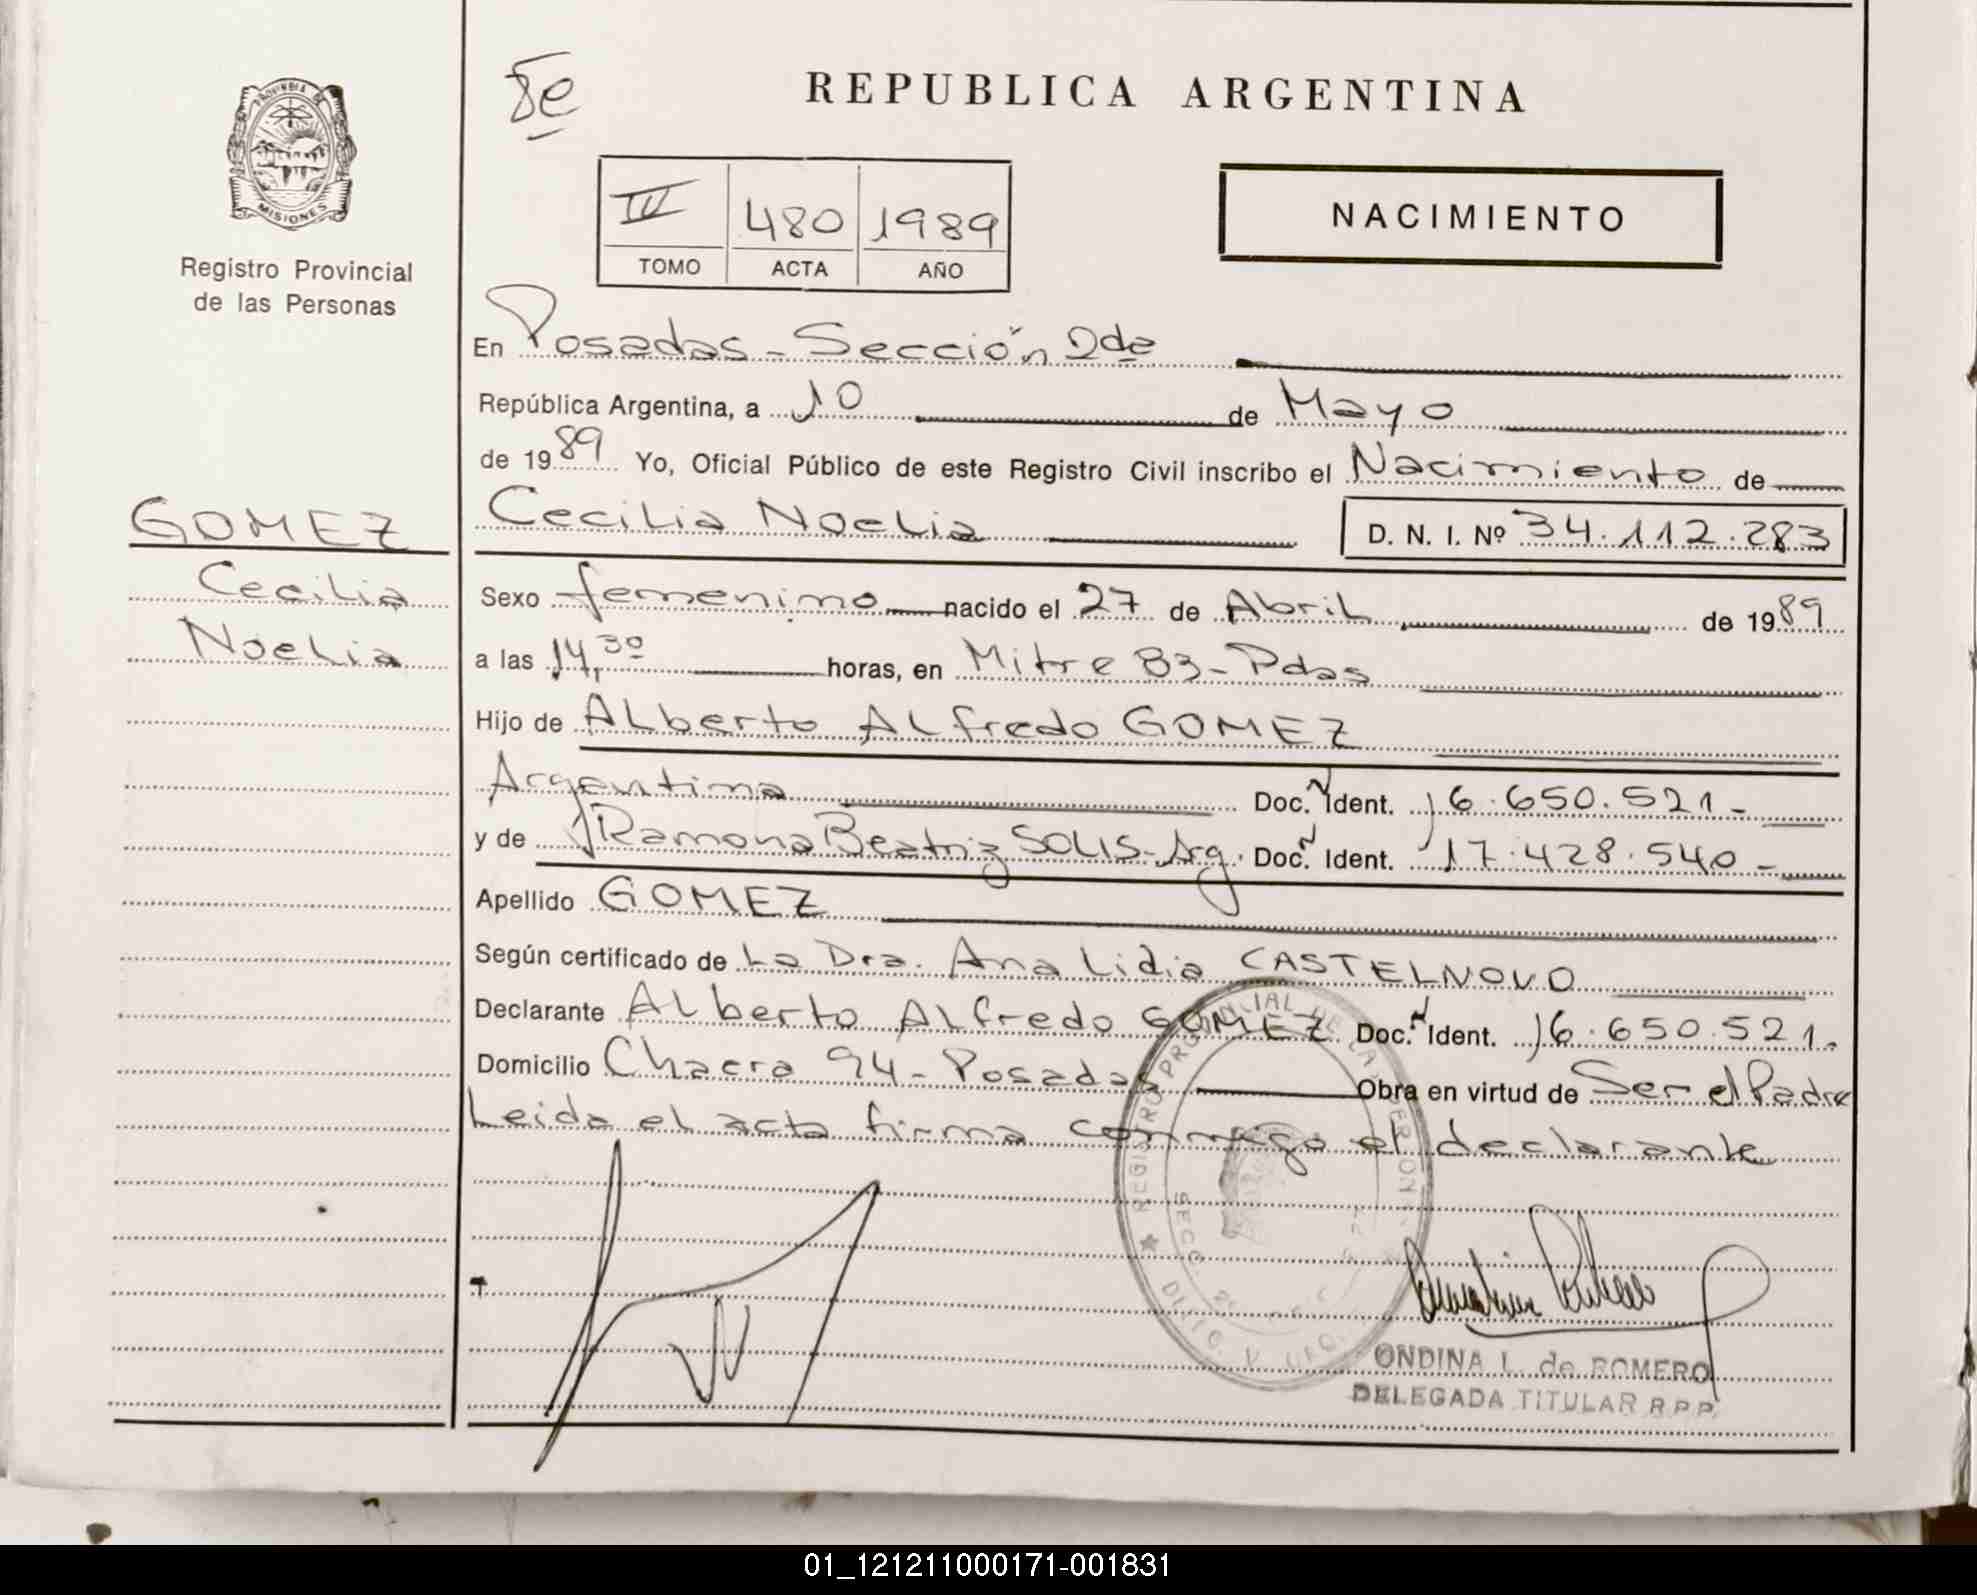 8e
REPUBLICA ARGENTINA
PROVINCIA DE
MISIONES
Registro Provincial
de las Personas
IV 480 1989
TOMO ACTA AÑO
NACIMIENTO
En Posadas - Sección 2da
República Argentina, a 10 de Mayo
de 1989 Yo, Oficial Público de este Registro Civil inscribo el Nacimiento de
GOMEZ
Cecilia
Noelia
Cecilia Noelia D. N. I. Nº 34.112.283
Sexo femenino nacido el 27 de Abril de 1989
a las 14,30 horas, en Mitre 83 - Pdas
Hijo de Alberto Alfredo GOMEZ
Argentina Doc. N Ident. 16.650.521 -
y de Ramona Beatriz SOLIS - Arg. Doc. N Ident. 17.428.540 -
Apellido GOMEZ
Según certificado de La Dra. Ana Lidia CASTELNOVO
Declarante Alberto Alfredo GOMEZ Doc. N Ident. 16.650.521.
Domicilio Chacra 94 - Posadas Obra en virtud de Ser el Padre
Leida el acta firma conmigo el declarante
REGISTRO PROVINCIAL DE LAS PERSONAS
ONDINA L. de ROMERO
DELEGADA TITULAR R.P.P.
01_121211000171-001831